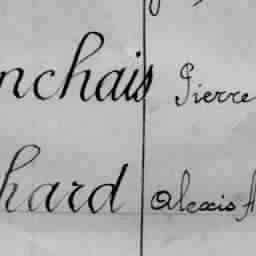 nchais Pierre
hard Alexis A